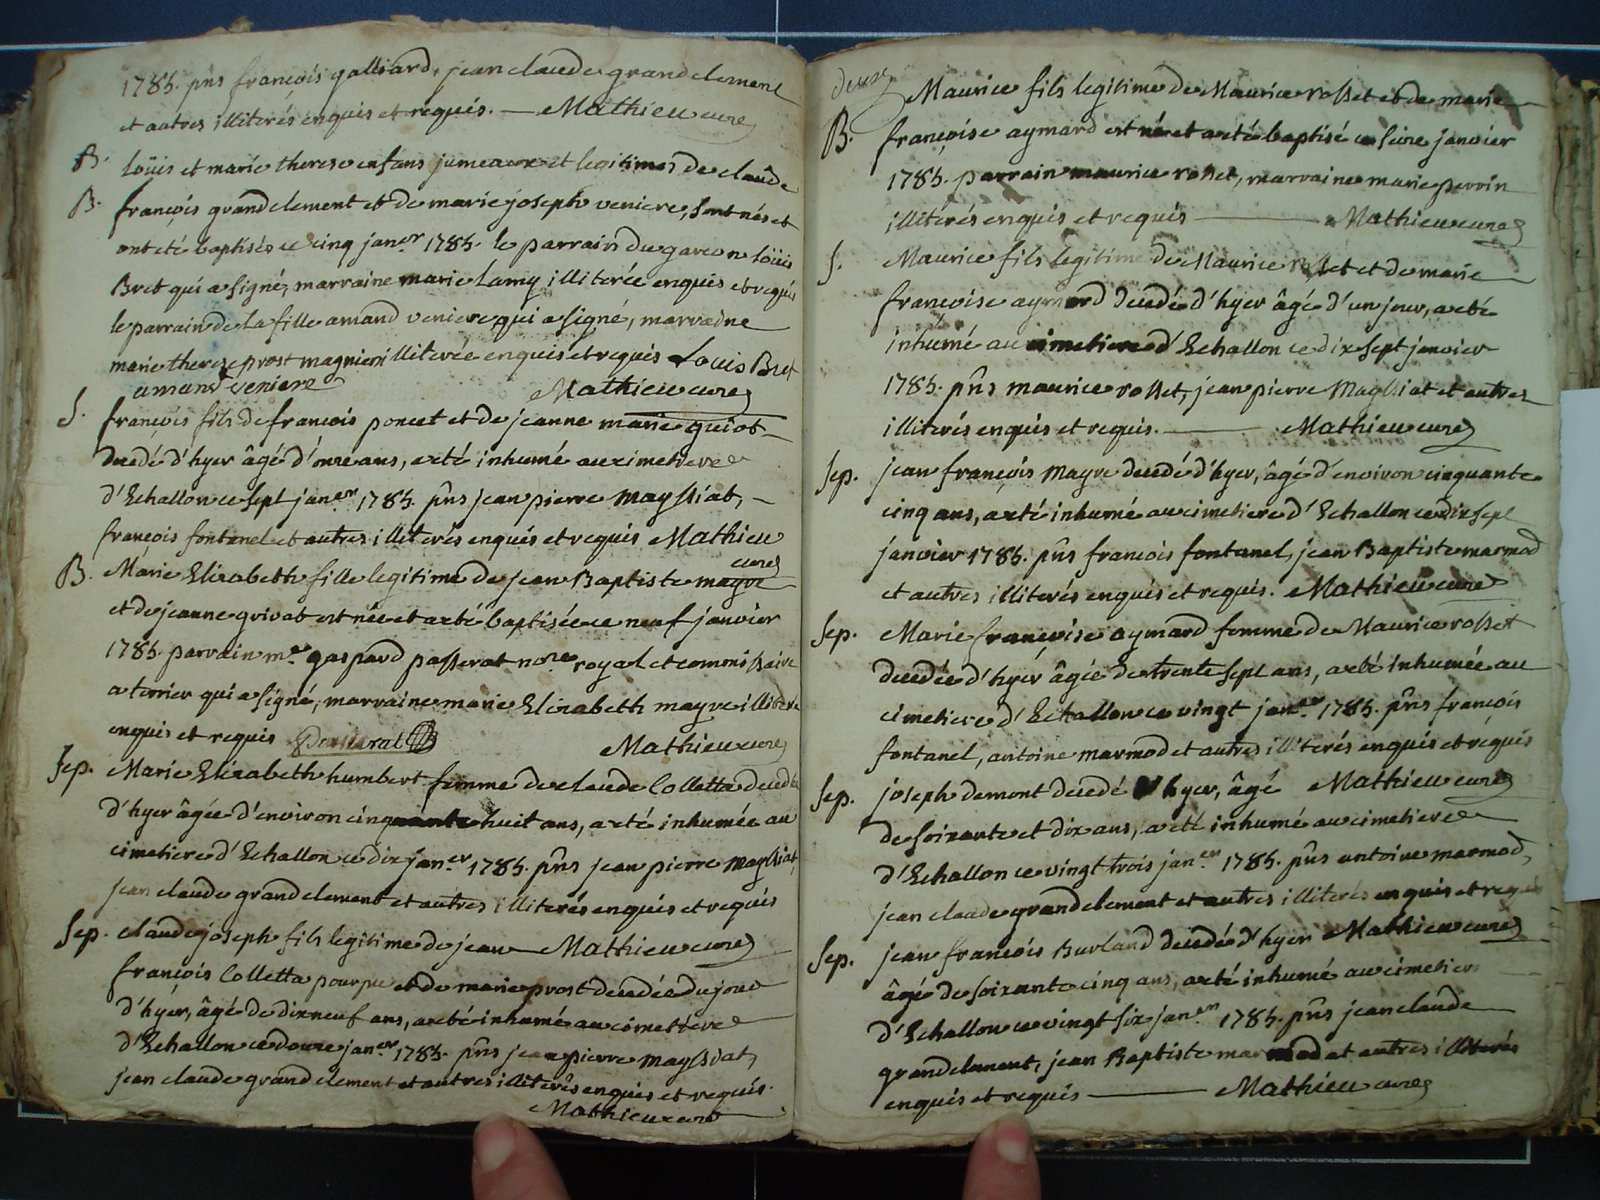 1785. pñs françois galliard, jean claude grandclement
et autres illiterés enquis et requis. — Mathieu curé
B. Loüis et marie therese enfans jumeaux et legitimes de claude
B. françois grandclement et de marie joseph veniere, sont nés et
ont eté baptisés ce cinq janer 1785. le parrain du garcon Loüis
Bret qui a signé, marraine marie Lamy illiterée enquis et requis
le parrain de la fille amand veniere qui a signé, marraine
marie therese prost magnien illiterée enquis et requis Louis Bret
amans veniere Mathieu curé
S. françois fils de françois poncet et de jeanne marie guiot
decedé d'hyer âgé d'onze ans, a eté inhumé au cimetiere
d'Echallon ce sept janer 1785. pñs jean pierre maysSiat,
françois fontanel et autres illiterés enquis et requis Mathieu
curé
B. Marie Elizabeth fille legitime de jean Baptiste mayre
et de jeanne grivat est née et a eté baptisée ce neuf janvier
1785. parrain me gaspard passerat nore royal et commissaire
a terrier qui a signé, marraine marie Elizabeth mayre illiterée
enquis et requis Passerat Mathieu curé
Sep. Marie Elizabeth humbert femme de claude Colletta decedée
d'hyer âgée d'environ cinquante huit ans, a eté inhumée au
cimetiere d'Echallon ce dix janer 1785. pñs jean pierre maysSiat,
jean claude grandclement et autres illiterés enquis et requis
Sep. claude joseph fils legitime de jean — Mathieu curé
françois Colletta pourpu et de marie prost decedé du jour
d'hyer, âgé de dixneuf ans, a eté inhumé au cimetiere
d'Echallon ce douze janer 1785. pñs jean pierre maysSiat,
jean claude grandclement et autres illiterés enquis et requis.
Mathieu curé
Maurice fils legitime de Maurice rosset et de marie
B. françoise aymard est né et a eté baptisé ce seize janvier
1785. parrain maurice rosset, marraine marie perrin
illiterés enquis et requis — Mathieu curé
S. Maurice fils legitime de Maurice rosset et de marie
françoise aymard decedé d'hyer âgé d'un jour, a eté
inhumé au cimetiere d'Echallon ce dix sept janvier
1785. pñs maurice rosset, jean pierre MaysSiat et autres
illiterés enquis et requis. — Mathieu curé
Sep. jean françois Mayre decedé d'hyer, âgé d'environ cinquante
cinq ans, a eté inhumé au cimetiere d'Echallon ce dix sept
janvier 1785. pñs françois fontanel, jean Baptiste marmod
et autres illiterés enquis et requis. Mathieu curé
Sep. Marie françoise aymard femme de Maurice rosset
decedée d'hyer âgée de trente sept ans, a eté inhumée au
cimetiere d'Echallon ce vingt janer 1785. pñs françois
fontanel, antoine marmod et autres illiterés enquis et requis
Sep. joseph demont decedé d'hyer, âgé Mathieu curé
de soixante et dix ans, a eté inhumé au cimetiere
d'Echallon ce vingt trois janer 1785. pñs antoine marmod,
jean claude grandclement et autres illiterés enquis et requis
Sep. jean françois Burland decedé d'hyer Mathieu curé
âgé de soixante cinq ans, a eté inhumé au cimetiere
d'Echallon ce vingt six janer 1785. pñs jean claude
grandclement, jean Baptiste marmod et autres illiterés
enquis et requis — Mathieu curé